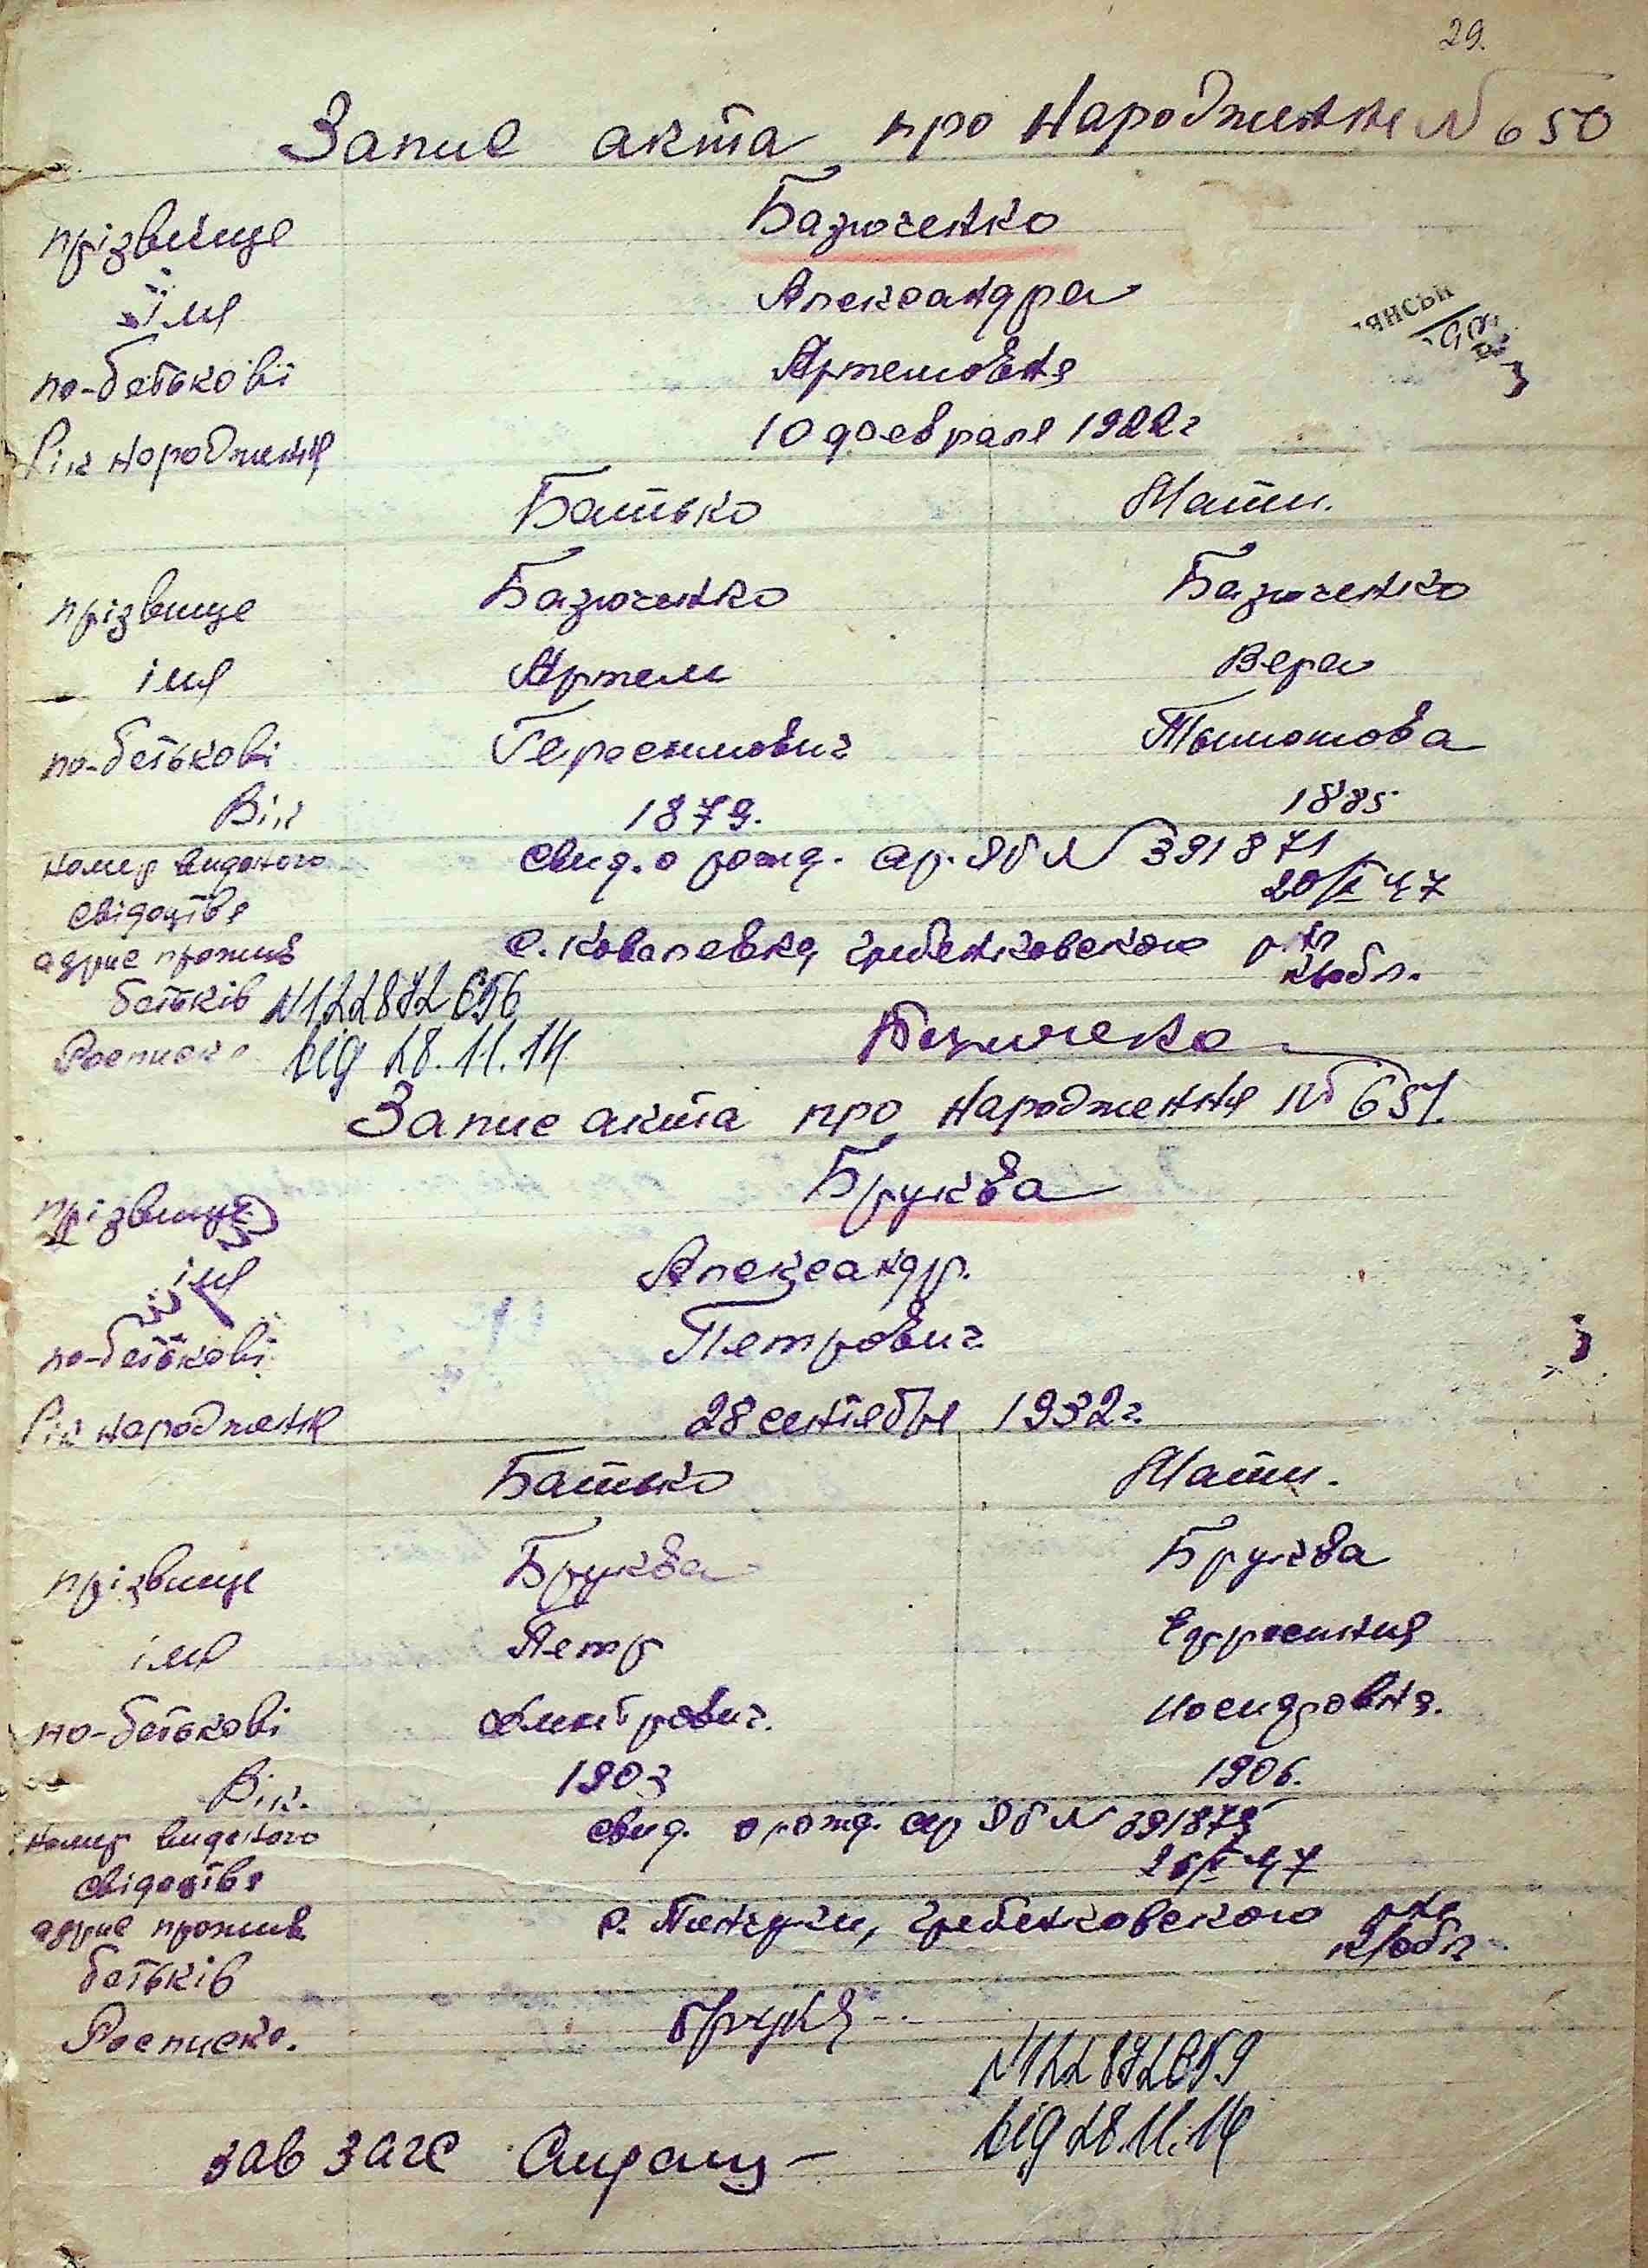 29.
Запис акта про народження № 650
прізвище Базюченко
імя Александра
по-батькові Артемовна
Рік народження 10 февраля 1922 г
Батько Мати.
прізвище Базюченко Базюченко
імя Артем Вера
по-батькові Герасимович Тимотова
Вік 1879. 1885
номер виданого свид. о рожд. № 391871
свідоцтва 47
адрис прожив с. Ковалевка, Гребенковского р-на
батьків К/обл.
№122872656
Росписка від 28.11.14
Запис акта про народження № 651.
прізвище Бруква
імя Александр.
по-батькові Петрович
Рік народження 28 сентября 1932 г.
Батько Мати.
прізвище Бруква Бруква
імя Петр Ефросиния
по-батькові Дмитрович.
Вік. 1903 1906.
номер виданого свид. о рожд.
свідоцтва 47
адрис прожив с. Пинчуки, Гребенковского р-на
батьків К/обл.
Росписка.
№122872659
від 28.11.14
зав загс